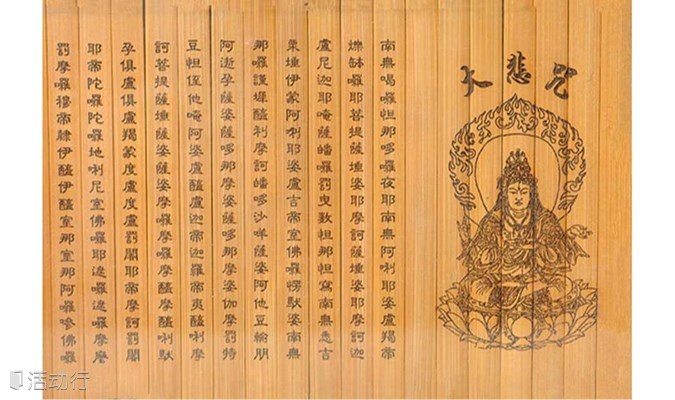 大悲咒
南無喝囉怛那哆囉夜耶南無阿唎耶婆盧羯帝
爍缽囉耶菩提薩埵婆耶摩訶薩埵婆耶摩訶迦
盧尼迦耶唵薩皤囉罰曳數怛那怛寫南無悉吉
栗埵伊蒙阿唎耶婆盧吉帝室佛囉愣馱婆南無
那囉謹墀醯唎摩訶皤哆沙咩薩婆阿他豆輸朋
阿逝孕薩婆薩哆那摩婆薩哆那摩婆伽摩罰特
豆怛侄他唵阿婆盧醯盧迦帝迦羅帝夷醯唎摩
訶菩提薩埵薩婆薩婆摩囉摩囉摩醯摩醯唎馱
孕俱盧俱盧羯蒙度盧度盧罰闍耶帝摩訶罰闍
耶帝陀囉陀囉地唎尼室佛囉耶遮囉遮囉摩麼
罰摩囉穆帝隸伊醯伊醯室那室那阿囉嘇佛囉
活动行